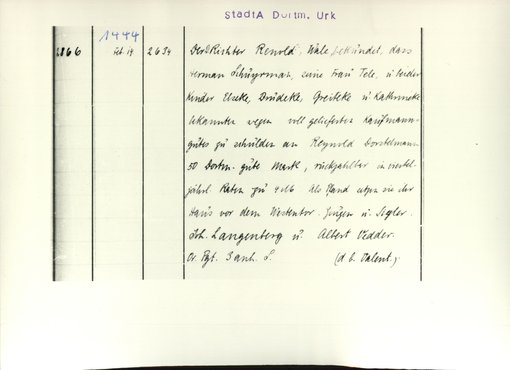 StadtA Dortm. Urk
1444
2166 Feb. 14 2634 Der Richter Renold Wale bekundet, dass
Herman Schuyrman, seine Frau Tele, u beider
Kinder Elzeke, Drudeke, Greiteke u Kathrineke
bekannten wegen voll gelieferten Kaufmann-
gutes zu schulden an Reynold Dorstelmann
50 Dortm. gute Mark, rückzahlbar in viertel-
jährl. Raten zu 4 M. Als Pfand setzen sie ihr
Haus vor dem Westentor. Zeugen u. Siegler.
Joh. Langenberg u. Albert Vedder.
Or. Pgt. 3 anh. S. (d. b. Valent.)